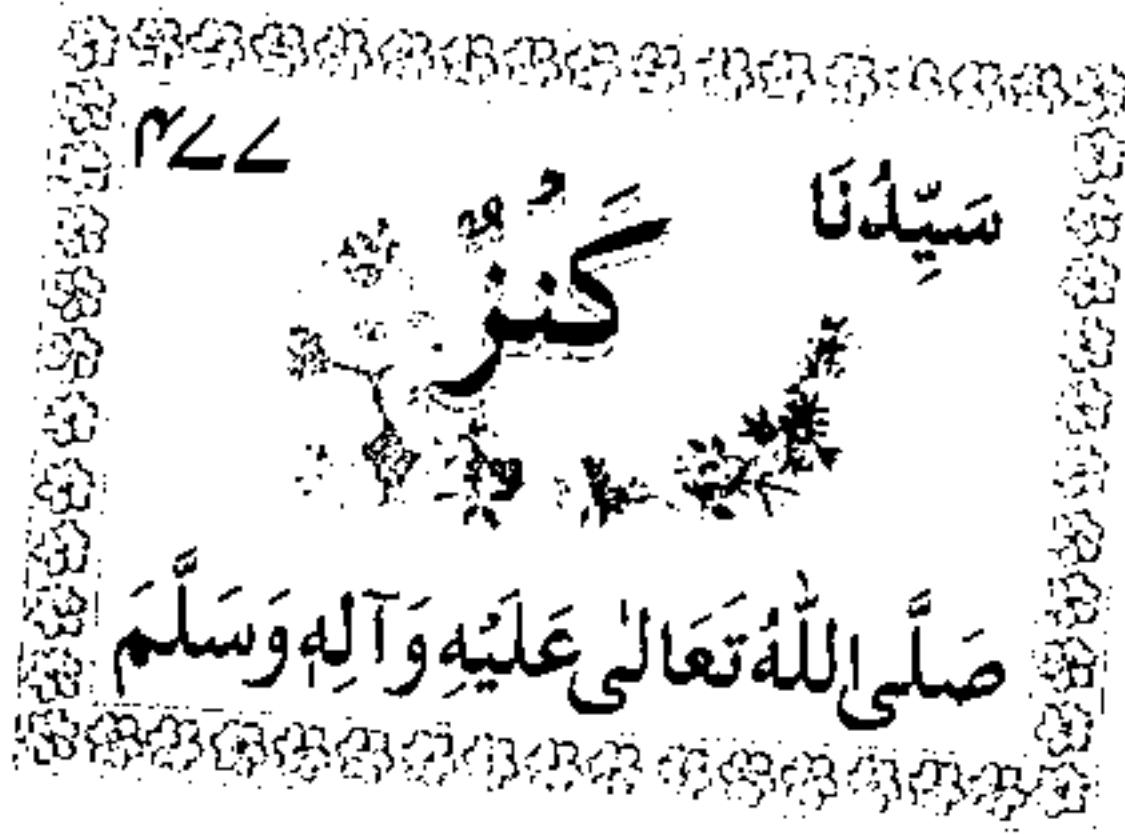 ۴۷۷
سَيِّدُنَا
كَنْزٌ
صَلَّى اللّٰهُ تَعَالٰى عَلَيْهِ وَآلِهٖ وَسَلَّمَ